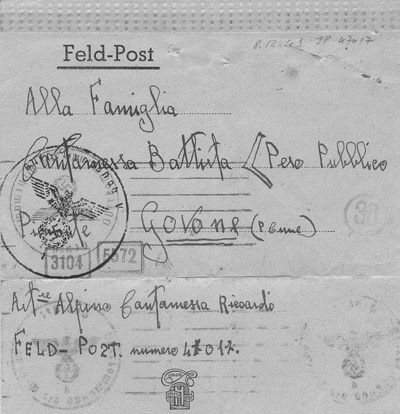 8.12.43 FP 47017
Feld-Post
Alla Famiglia
Cantamessa Battista / Peso Pubblico
Piemonte Govone (P. Cuneo)
30
3104 5572
Art.re Alpino Cantamessa Riccardo
FELD-POZT. numero 47017.